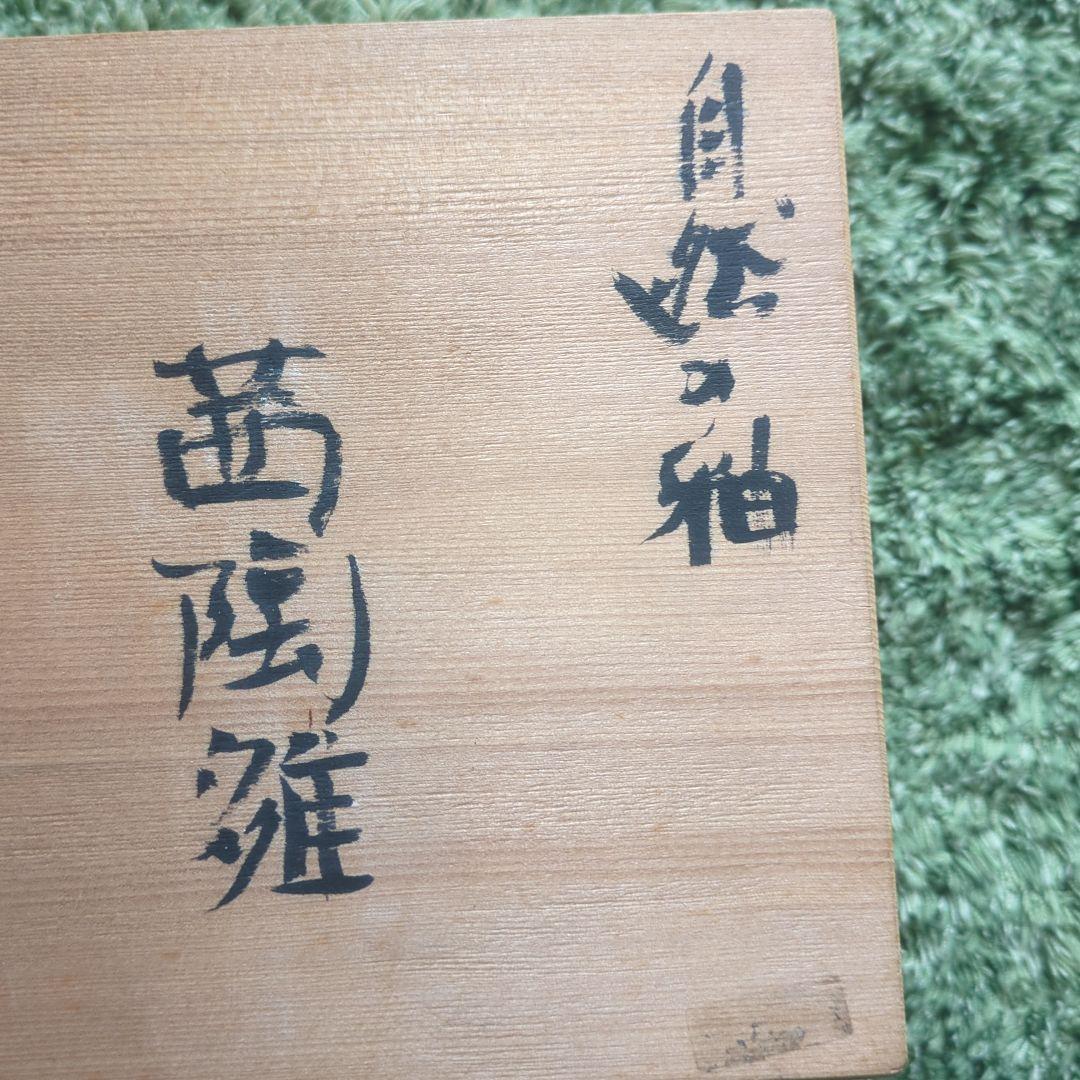 自然の釉
茜陶雛